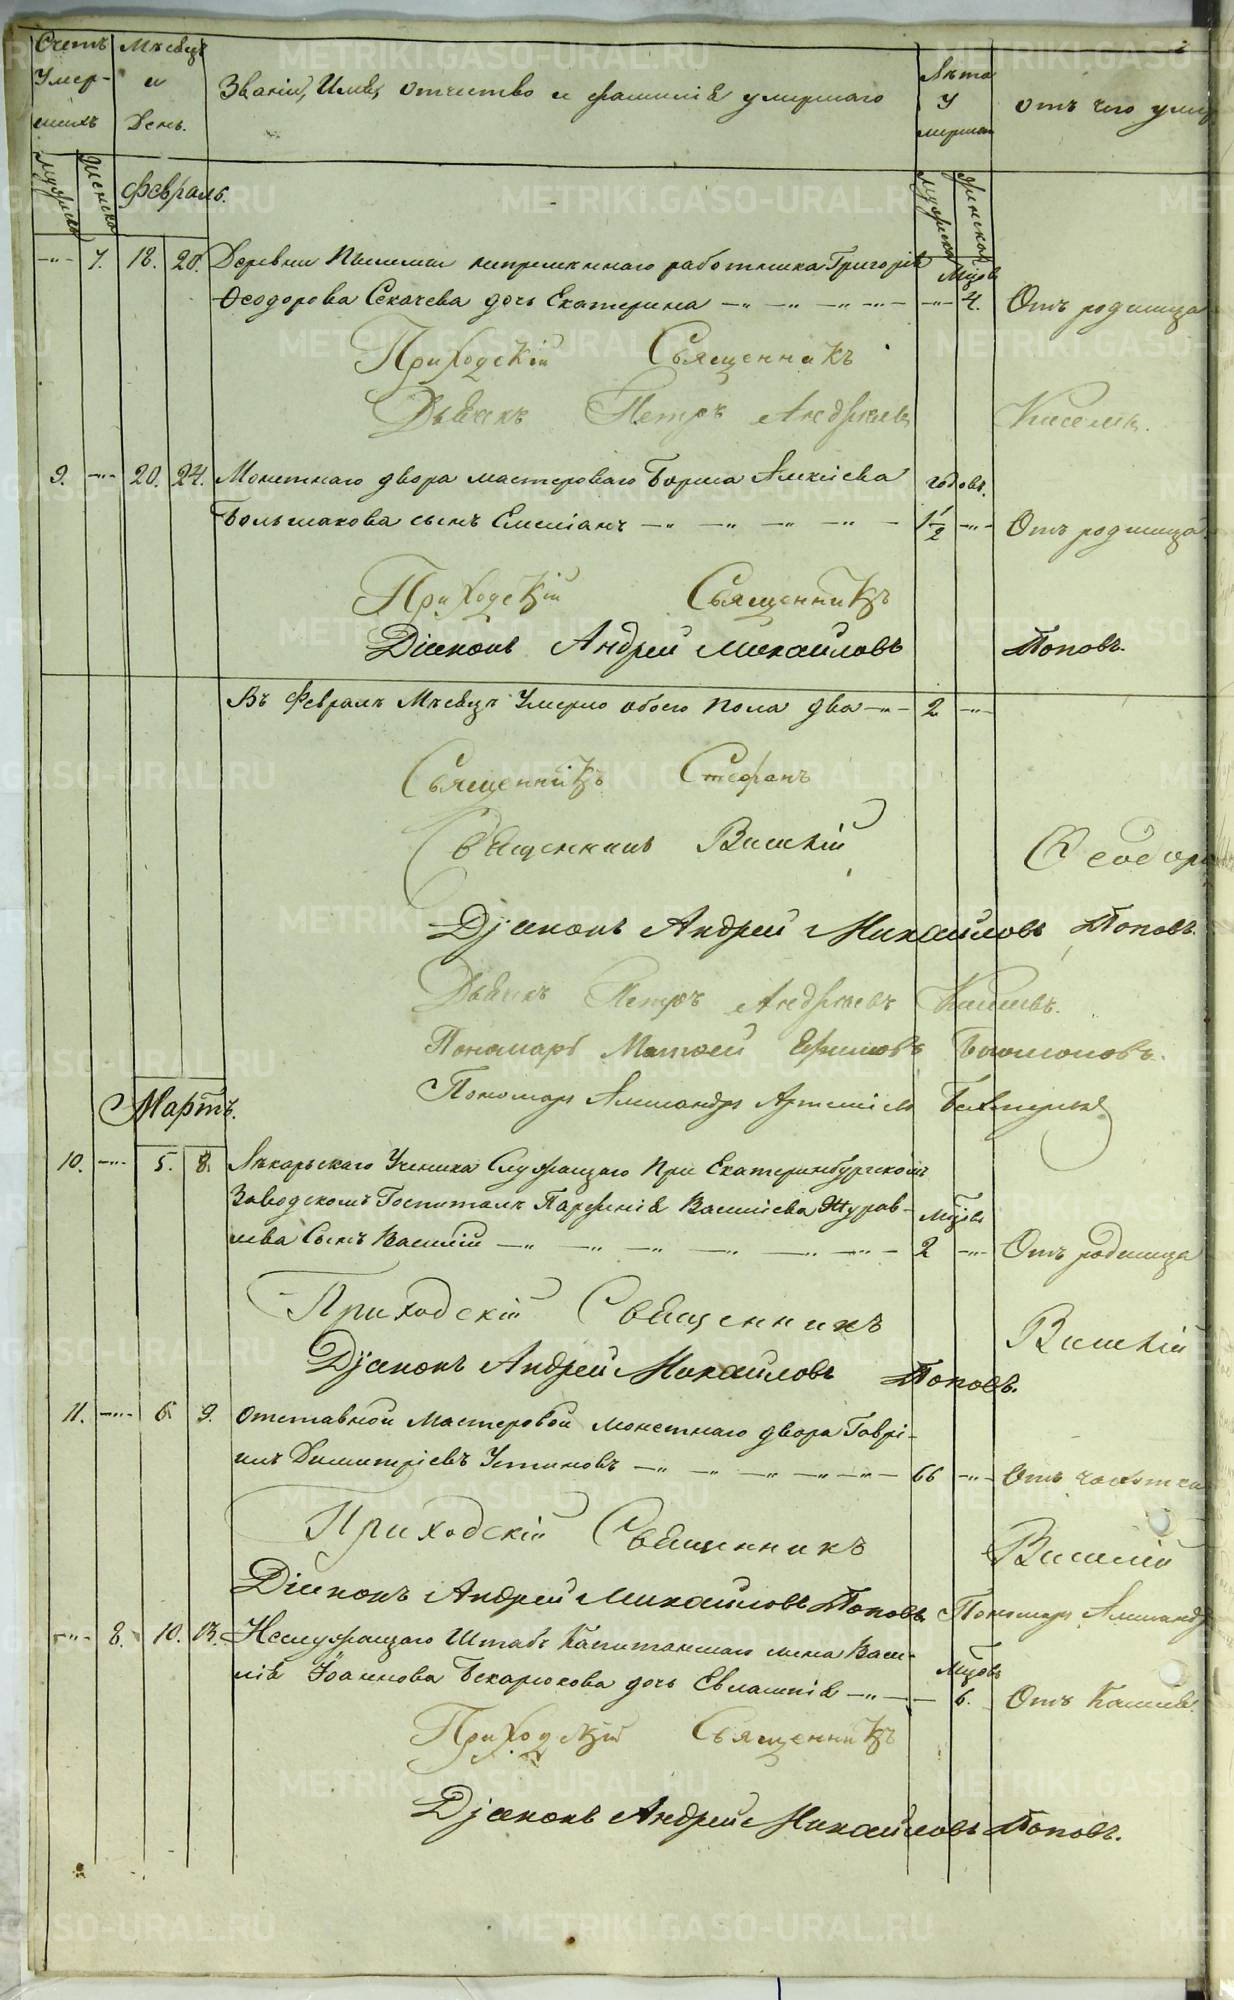 Счетъ умер-шихъ
Мѣсяцъ и День.
Званіи, Имя, отчество и фамилія умершаго
Лѣта умершаго
отъ чего уме
мужеска
женска
Февраль.
мужеска
женска
7. 18. 20. Деревни непремѣннаго работника Григорія Мцовъ
Ѳеодорова Секачева дочь Екатерина 4. Отъ родимца
Приходскій Священникъ
Дьячекъ Петръ Андреевъ
9. 20. 24. Монетнаго двора мастероваго Бориса Алексіева годовъ.
Большакова сынъ Емеліанъ 1 1/2 Отъ родимца.
Приходскій Священникъ
Діаконъ Андрей Михайловъ Поповъ.
Въ Февралѣ Мѣсяцѣ Умерло обоего пола два 2
Священникъ Стефанъ
Священникъ Василій Ѳеодор
Діаконъ Андрей Михайловъ Поповъ.
Дьячекъ Петръ Андреевъ
Пономарь Матѳей Ефимовъ
Мартъ.
Пономарь Александръ Артеміевъ
10. 5. 8. Лѣкарьскаго Ученика Служащаго При Екатеринбургскомъ
Заводскомъ Госпиталѣ Парфенія Василіева Журав- Мцовъ
лева Сынъ Василій 2 Отъ родимца
Приходскій Священникъ Василій
Діаконъ Андрей Михайловъ Поповъ.
11. 6 9. Отставной Мастеровой монетнаго двора Гаврі-
илъ Димитріевъ Устиновъ 66 Отъ чахотки
Приходскій Священникъ Василій
Діаконъ Андрей Михайловъ Поповъ Пономарь Александръ
8. 10. 13. Неслужащаго Штабъ Капитаншаго Васи- Мцовъ
лія Іоаннова Бекарюкова дочь Евлампія 6. Отъ Кашля.
Приходскій Священникъ
Діаконъ Андрей Михайловъ Поповъ.
METRIKI.GASO-URAL.RU